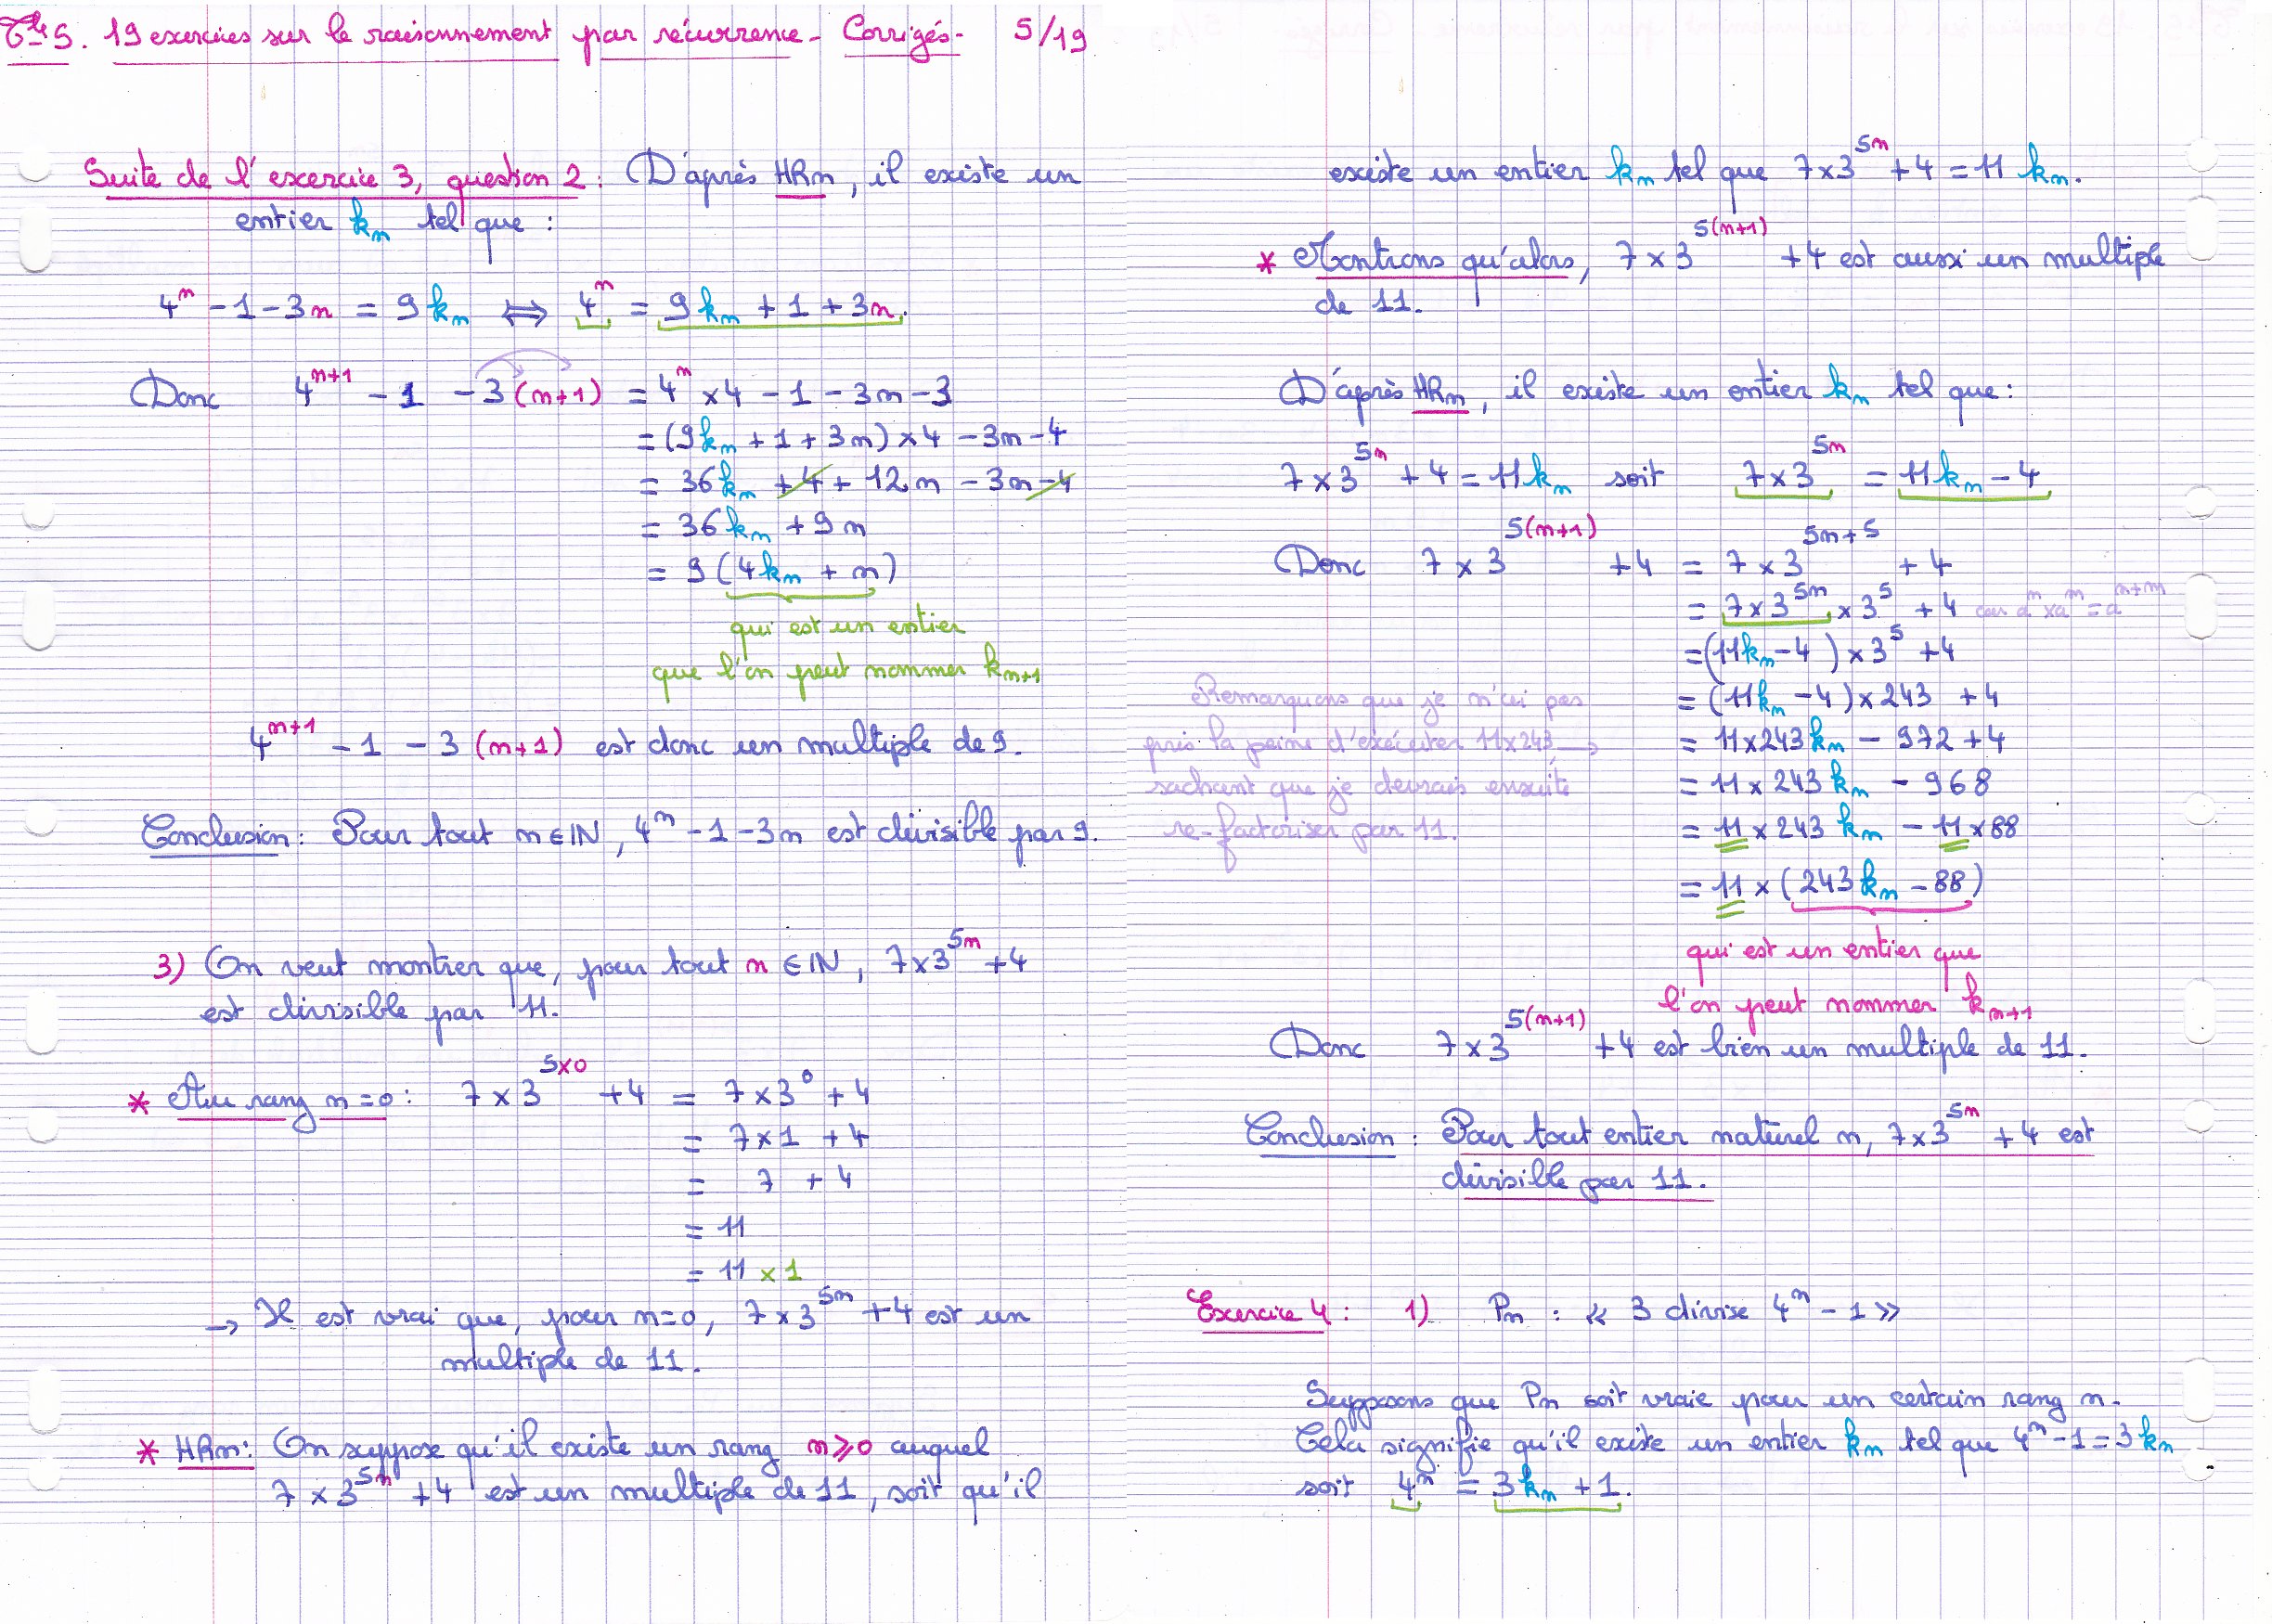 Tle S. 19 exercices sur le raisonnement par récurrence - Corrigés - 5/19
Suite de l'exercice 3, question 2 : D'après HRn, il existe un
entier kn tel que :
4^n - 1 - 3n = 9 kn ⟺ 4^n = 9 kn + 1 + 3n.
Donc 4^(n+1) - 1 - 3 (n+1) = 4^n × 4 - 1 - 3n - 3
= (9kn + 1 + 3n) × 4 - 3n - 4
= 36 kn + 4 + 12n - 3n - 4
= 36 kn + 9n
= 9 (4kn + n)
qui est un entier
que l'on peut nommer kn+1
4^(n+1) - 1 - 3 (n+1) est donc un multiple de 9.
Conclusion : Pour tout n ∈ IN, 4^n - 1 - 3n est divisible par 9.
3) On veut montrer que, pour tout n ∈ IN, 7×3^(5n) + 4
est divisible par 11.
* Au rang n = 0 : 7 × 3^(5×0) + 4 = 7 × 3^0 + 4
= 7 × 1 + 4
= 7 + 4
= 11
= 11 × 1
→ Il est vrai que, pour n=0, 7 × 3^(5n) + 4 est un
multiple de 11.
* HRn : On suppose qu'il existe un rang n ⩾ 0 auquel
7 × 3^(5n) + 4 est un multiple de 11, soit qu'il
existe un entier kn tel que 7×3^(5n) + 4 = 11 kn.
* Montrons qu'alors, 7 × 3^(5(n+1)) + 4 est aussi un multiple
de 11.
D'après HRn, il existe un entier kn tel que :
7 × 3^(5n) + 4 = 11kn soit 7 × 3^(5n) = 11kn - 4
Donc 7 × 3^(5(n+1)) + 4 = 7 × 3^(5n+5) + 4
= 7 × 3^(5n) × 3^5 + 4 car a^n × a^m = a^(n+m)
= (11kn - 4) × 3^5 + 4
= (11kn - 4) × 243 + 4
Remarquons que je n'ai pas
pris la peine d'exécuter 11×243 →
sachant que je devrais ensuite
re-factoriser par 11.
= 11×243 kn - 972 + 4
= 11 × 243 kn - 968
= 11 × 243 kn - 11 × 88
= 11 × (243 kn - 88)
qui est un entier que
l'on peut nommer kn+1
Donc 7 × 3^(5(n+1)) + 4 est bien un multiple de 11.
Conclusion : Pour tout entier naturel n, 7×3^(5n) + 4 est
divisible par 11.
Exercice 4 : 1) Pn : « 3 divise 4^n - 1 »
Supposons que Pn soit vraie pour un certain rang n.
Cela signifie qu'il existe un entier kn tel que 4^n - 1 = 3 kn
soit 4^n = 3 kn + 1.